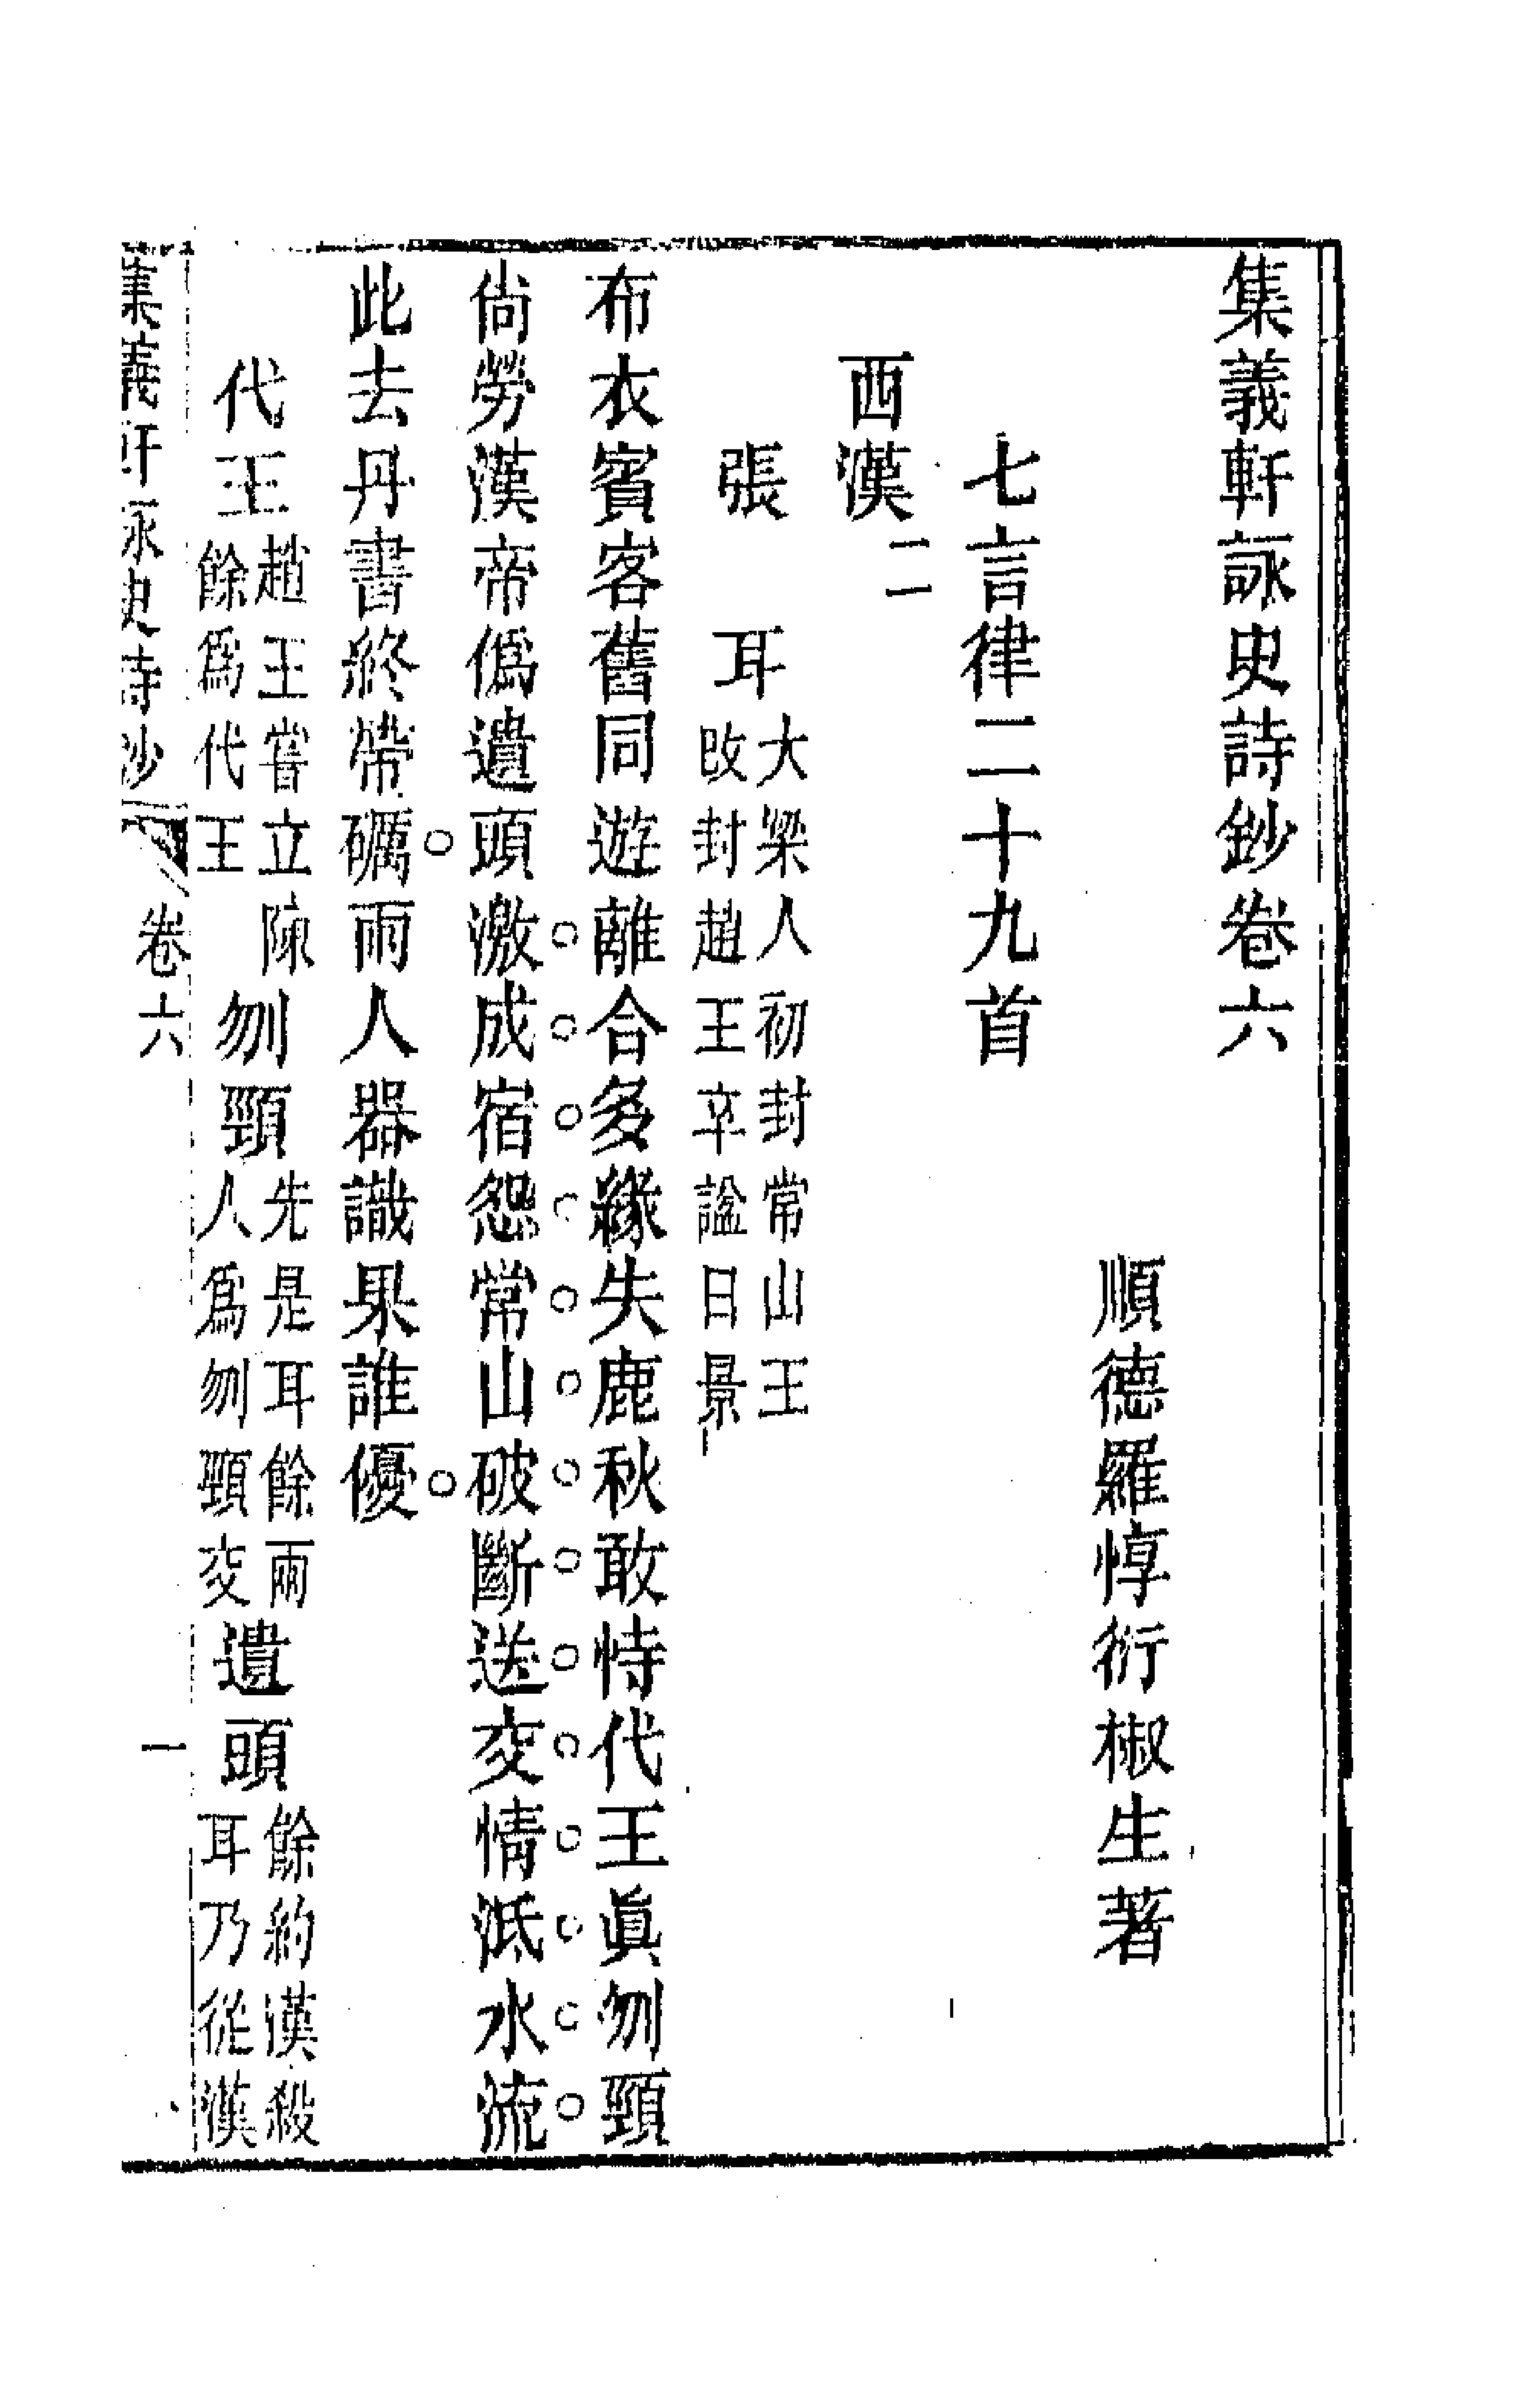 集義軒詠史詩鈔卷六
順德羅惇衍椒生著
七言律二十九首
西漢二
張耳大梁人初封常山王
改封趙王卒諡曰景
布衣賓客舊同遊離合多緣失鹿秋敢恃代王眞刎頸
尙勞漢帝僞遺頭激成宿怨常山破斷送交情泜水流
此去丹書終帶礪兩人器識果誰優
代王趙王嘗立陳
餘爲代王
刎頸先是耳餘兩
人爲刎頸交
遺頭餘約漢殺
耳乃從漢
集義軒詠史詩鈔 卷六 一